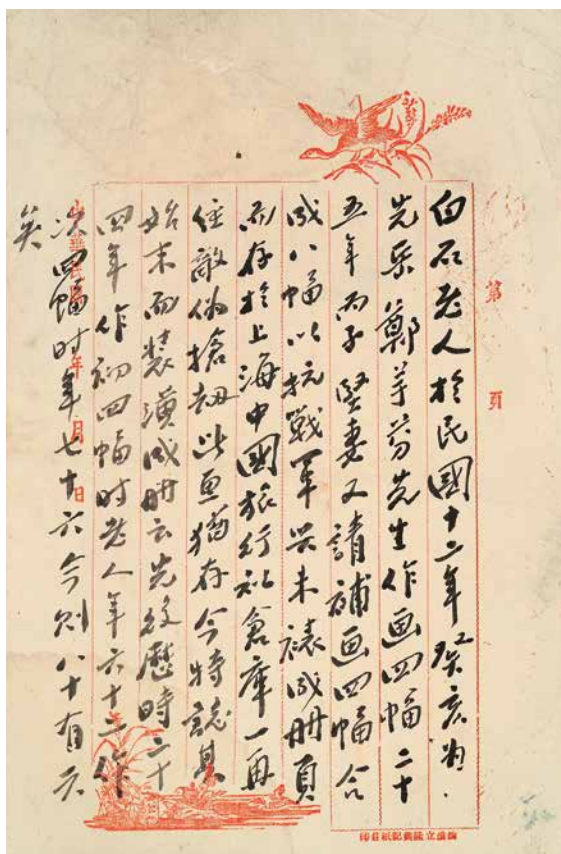 第 頁
白石老人於民國十二年癸亥為
先岳鄭先生作画四幅二十
五年丙子妻又請補画四幅合
成八幅以抗戰軍興未裱成册頁
而存於上海中國旅行社倉庫一再
經敵偽搶劫此画猶存今特誌其
始末而裝潢成册云先後歷時二十
四年作初四幅时老人年六十二作
次四幅时年七十六今則八十有六
矣
中華民國 年 月 日
記紙莊印